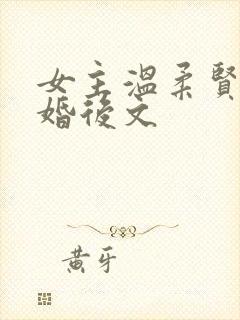 女主溫柔賢
婚後文
黃牙